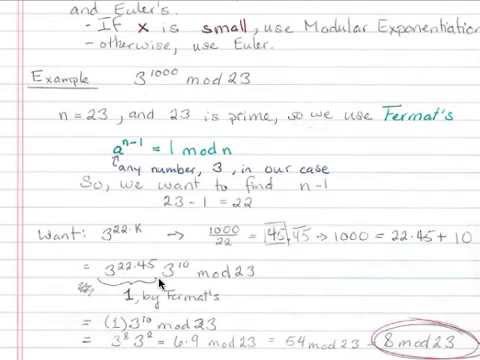 and Euler's.
- If x is small, use Modular Exponentiation
- otherwise, use Euler.
Example 3^1000 mod 23
n = 23, and 23 is prime, so we use Fermat's
a^n-1 = 1 mod n
any number, 3, in our case
So, we want to find n-1
23 - 1 = 22
Want: 3^22·K → 1000/22 = 45.45 → 1000 = 22·45 + 10
= 3^22·45 3^10 mod 23
1, by Fermat's
= (1)·3^10 mod 23
= 3^8 3^2 = 6·9 mod 23 = 54 mod 23 = 8 mod 23